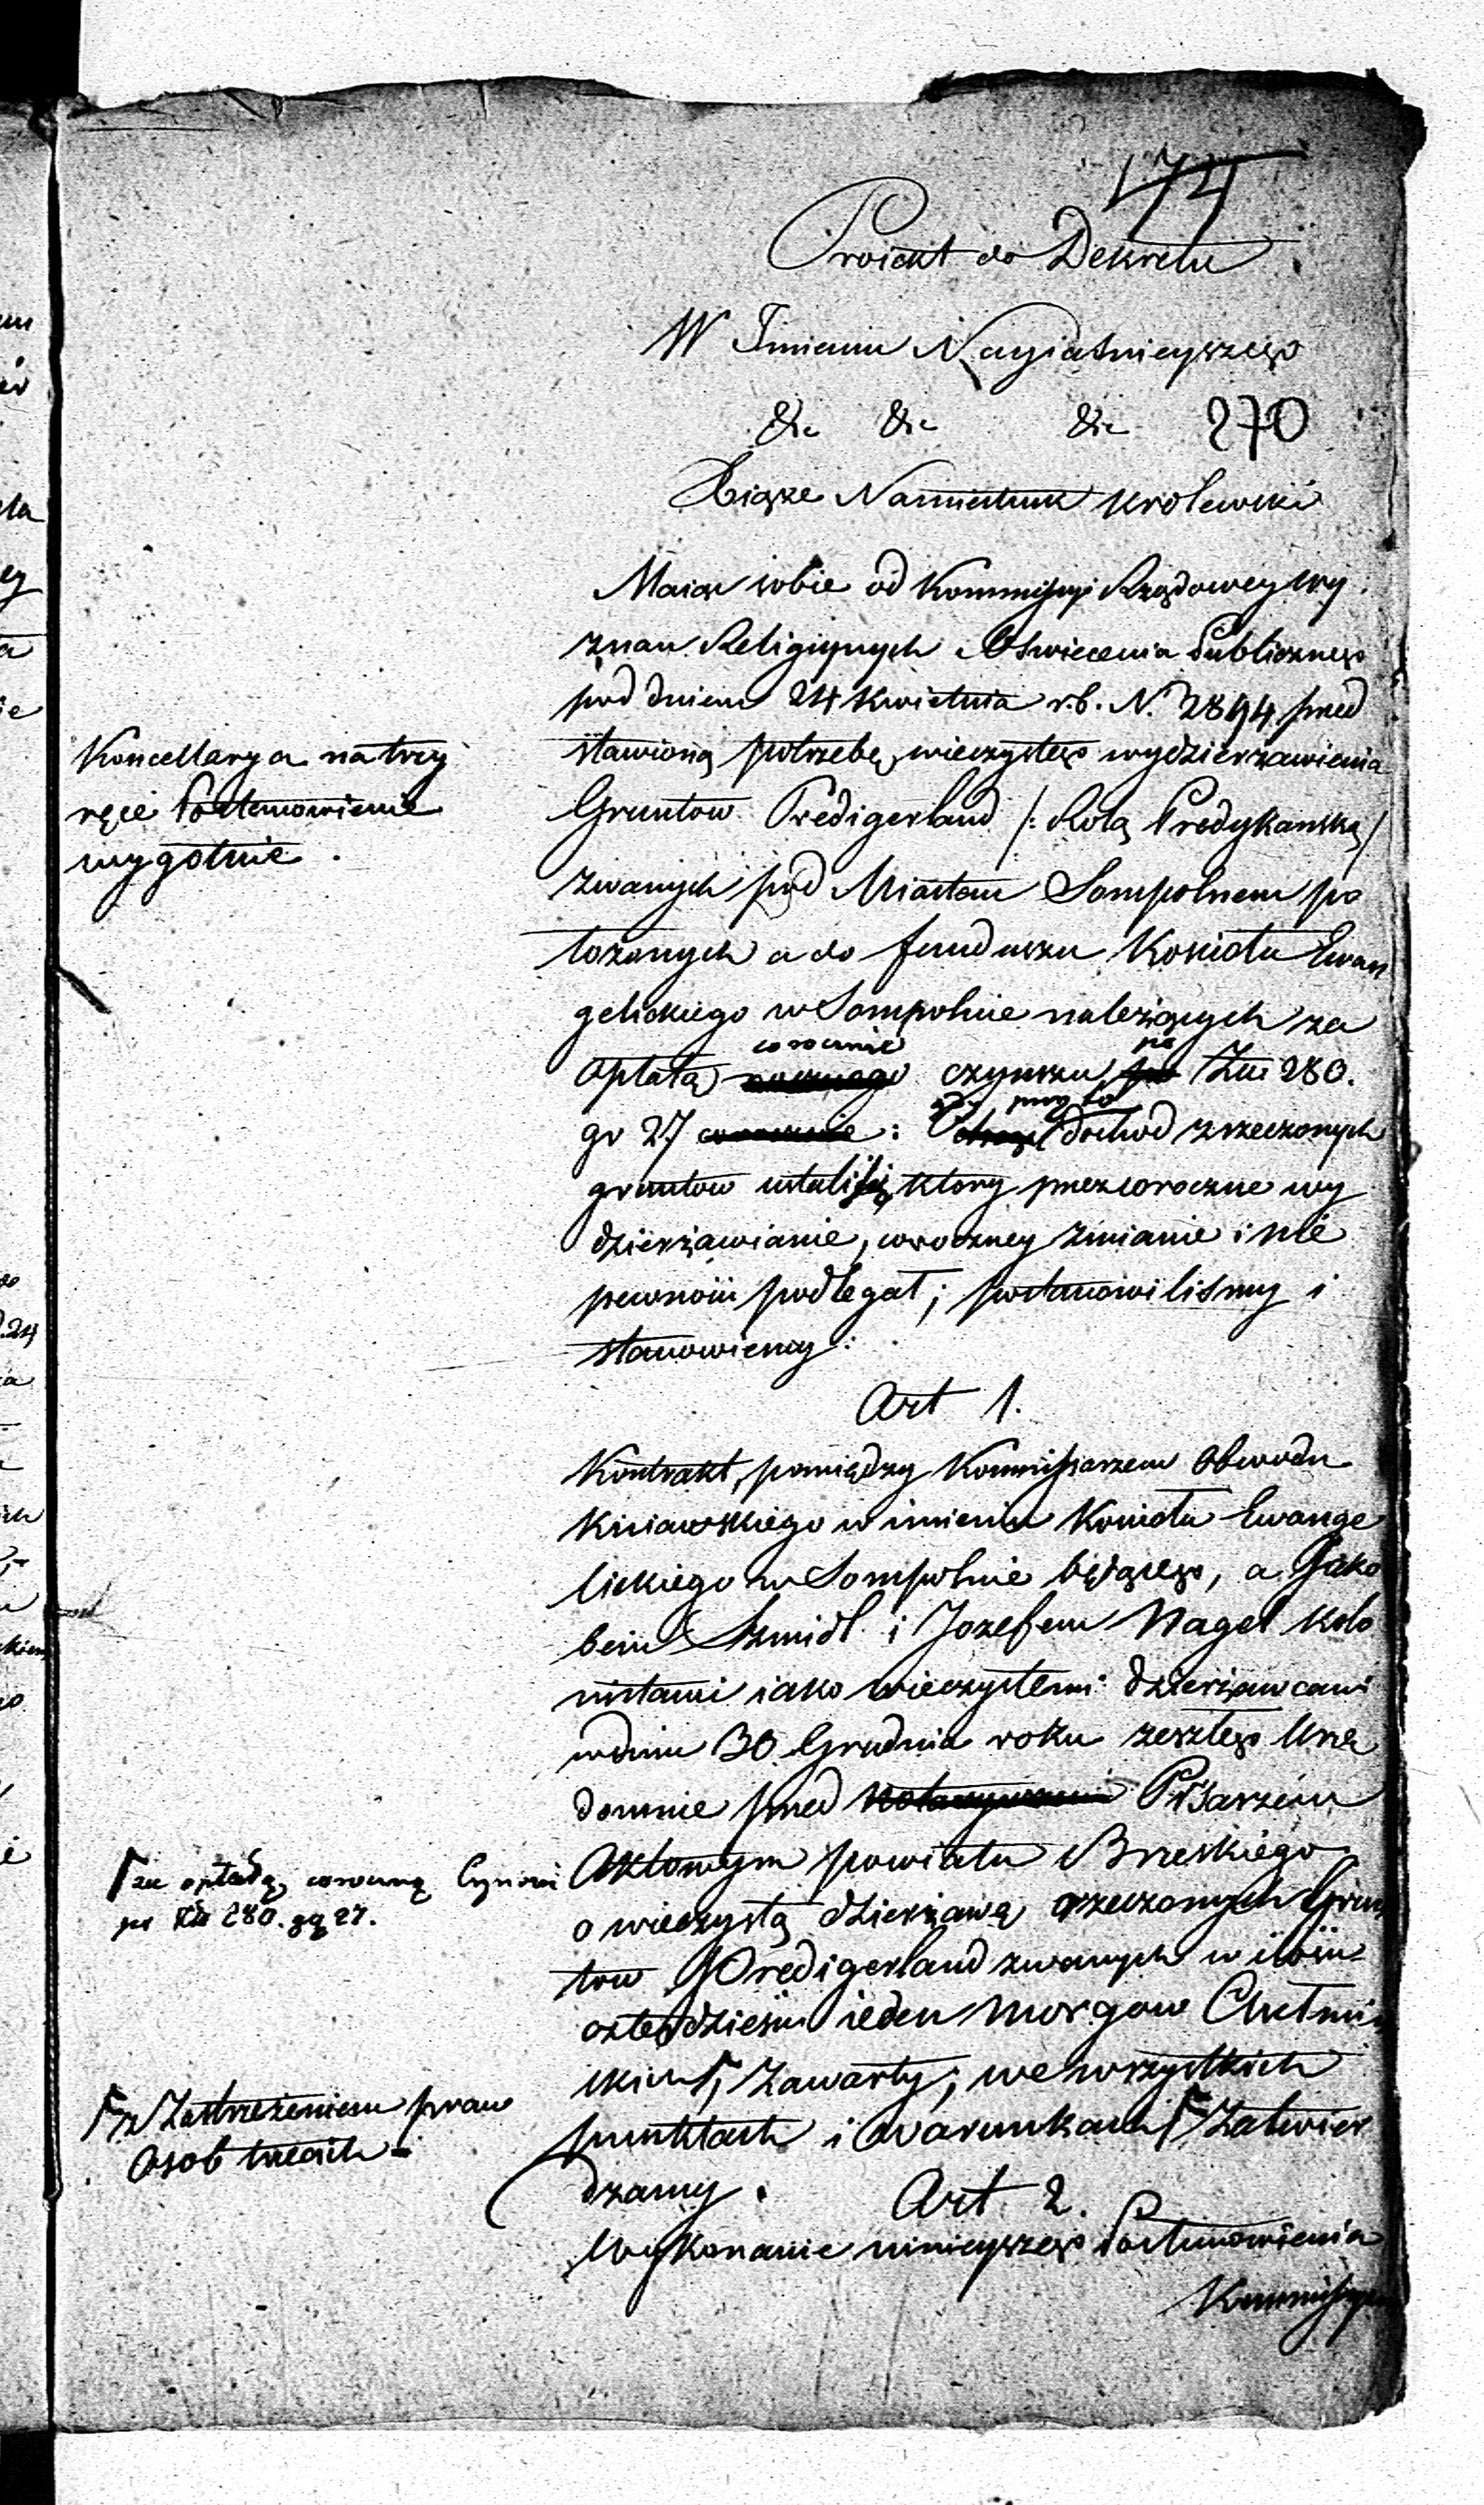 174
Proiekt do Dekretu
W Imieniu Nayiaśnieyszego
&c &c &c 270
Xiąże Namiestnik Krolewski
Maiąc sobie od Kommissyi Rządowey Wy
znan Religiynych i Oswiecenia Publicznego
pod dniem 24 Kwietnia r. b. N. 2894 przed
stawioną potrzebę wieczystego wydzierzawienia
Gruntow Predigerland /: Rolą Predykanską /
zwanych pod Miastem Sompolnem po
łozonych a do funduszu Kosciołu Ewan
gelickiego w Sompolnie nalezących za
corocznie po
opłatą czynszu Złu 280.
gr 27 : gdy przy to dochod z rzeczonych
gruntow ustali się, ktory przez coroczne wy
dzierzawianie, coroczney zmianie i nie
pewności podlegał; postanowilismy i
stanowiemy:
Art 1.
Kontrakt, pomiędzy Kommissarzem Obwodu
Kuiawskiego w imieniu Kosciołu Ewange
lickiego w Sompolnie będącego, a Jako
bem Szmidt i Jozefem Nagel Kolo
nistami iako wieczystemi dzierzawcami
w dniu 30 Grudnia roku zeszłego Urzę
downie przed Pisarzem
Aktowym powiatu Brzeskiego
o wieczystą dzierzawę rzeczonych Grun
tow Predigerland zwanych w ilości
czterdziesci ieden morgow Chełmin
skich, zawarty; we wszystkich
punktach i Warunkach zatwier
dzamy.
Art 2.
Wykonanie ninieyszego Postanowienia
Kommissyi
Koncellarya na trzy
ręce Postanowienie
wygotuie.
za opłatą coroczną Czynszu
po Złu 280. gr 27.
z Zastrzeżeniem praw
Osob trzecich